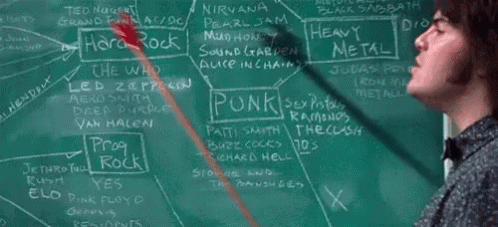 TED NUGENT
GRAND FUNK AC/DC
Hard Rock
THE WHO
LED ZEPPELIN
AEROSMITH
DEEP PURPLE
VAN HALEN
HENDRIX
Prog Rock
JETHRO TULL
RUSH
ELO
YES
PINK FLOYD
GENESIS
RESIDENTS
NIRVANA
PEARL JAM
MUDHONEY
SOUNDGARDEN
ALICE IN CHAINS
PUNK
SEX PISTOLS
RAMONES
THE CLASH
70's
PATTI SMITH
BUZZCOCKS
RICHARD HELL
SIOUXSIE AND
THE BANSHEES
X
BLACK SABBATH
HEAVY METAL
JUDAS PRIEST
IRON
METALL
DIO